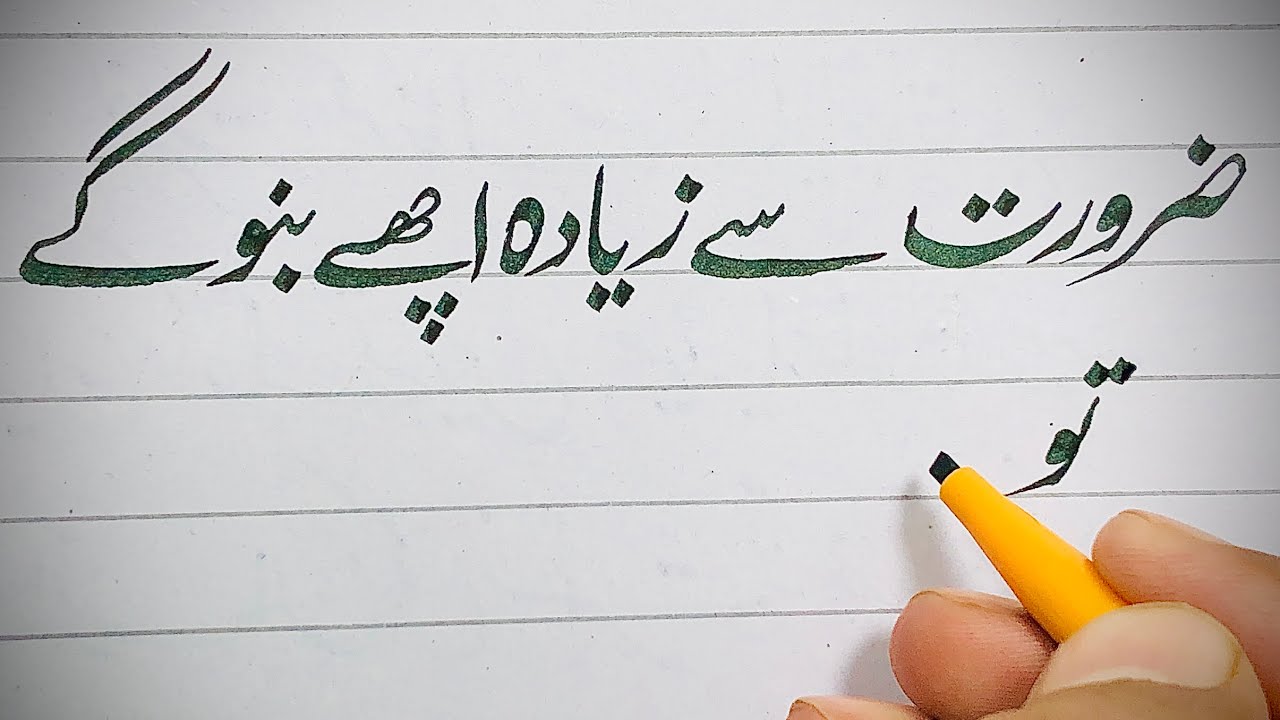 ضرورت سے زیادہ اچھے بنو گے
تو